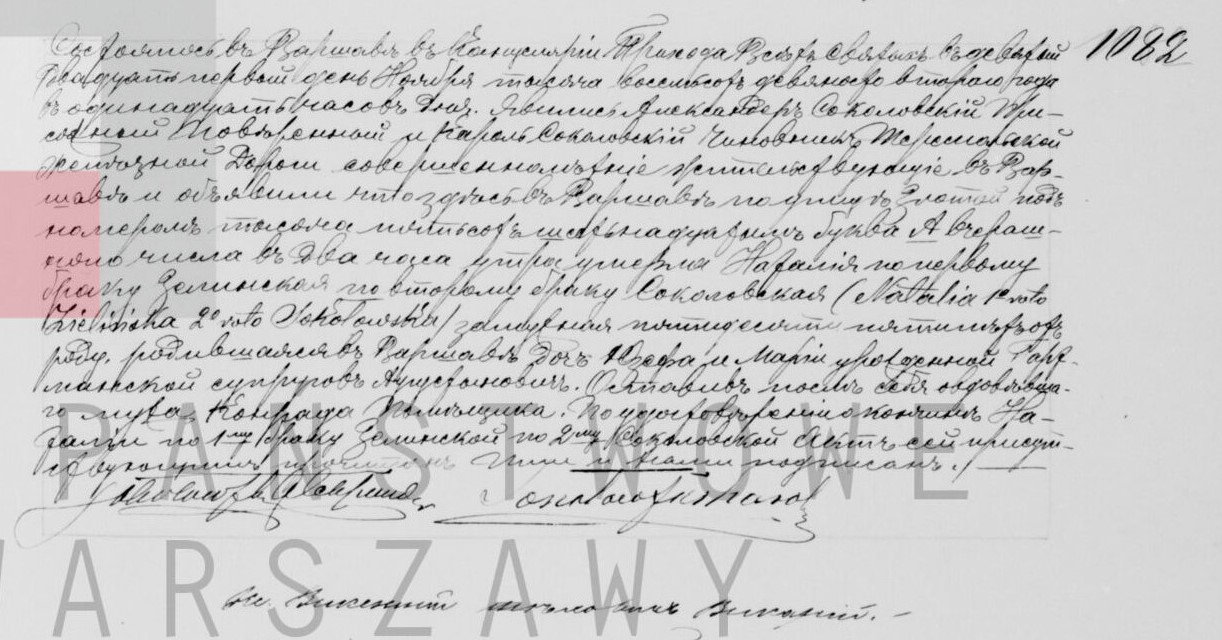 Состоялось въ Варшавѣ въ Канцеляріи Прихода Всѣхъ Святыхъ въ девятый 1082
двадцать первый день Ноября тысяча восемьсотъ девяносто втораго года
въ одинадцать часовъ дня. Явились Александеръ Соколовскій При-
сяжный Повѣренный и Кароль Соколовскій Чиновникъ Тереспольской
Желѣзной Дороги совершеннолѣтніе жительствующіе въ Вар-
шавѣ и объявили что здѣсь въ Варшавѣ по улицѣ Златой подъ
номеромъ тысяча пятьсотъ шестьнадцатымъ буква А вчераш-
няго числа въ два часа утра умерла Наталія по первому
браку Зелинская по второму браку Соколовская (Natalia 1º voto
Zielińska 2º voto Sokołowska) замужная пятидесяти пяти лѣтъ отъ
роду, родившаяся въ Варшавѣ дочь Юзефа и Маріи урожденной Гарт-
манской супруговъ Аугустыновичъ. Оставивъ послѣ себя овдовѣвша-
го мужа Конрада помѣщика. По удостовѣренію о кончинѣ На-
таліи по 1му браку Зелинской по 2му Соколовской Актъ сей присут-
ствующимъ прочитанъ Ими и нами подписанъ./
PAŃSTWOWE
WARSZAWY
Викентій Викарій.